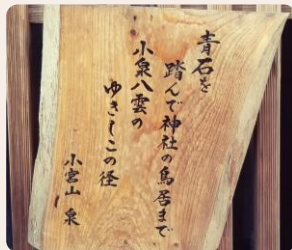 青石を
踏んで神社の鳥居まで
小泉八雲の
ゆきしこの径
小宮山 泉